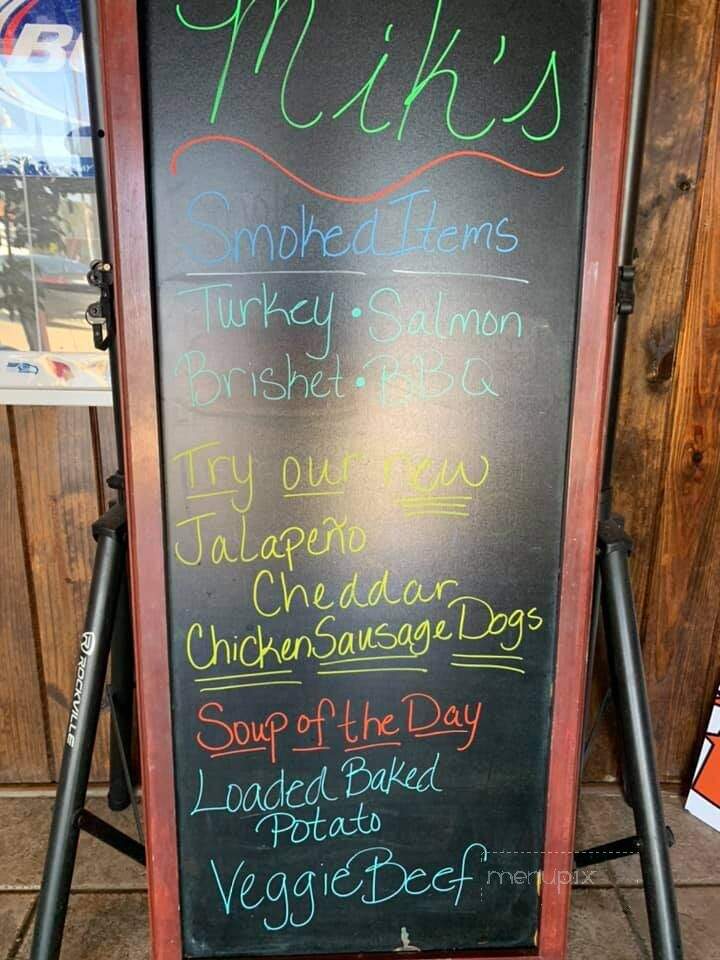 Mik's
Smoked Items
Turkey • Salmon
Brisket • BBQ
Try our new
Jalapeño
Cheddar
Chicken Sausage Dogs
Soup of the Day
Loaded Baked
Potato
Veggie Beef
menupix
R ROCKVILLE